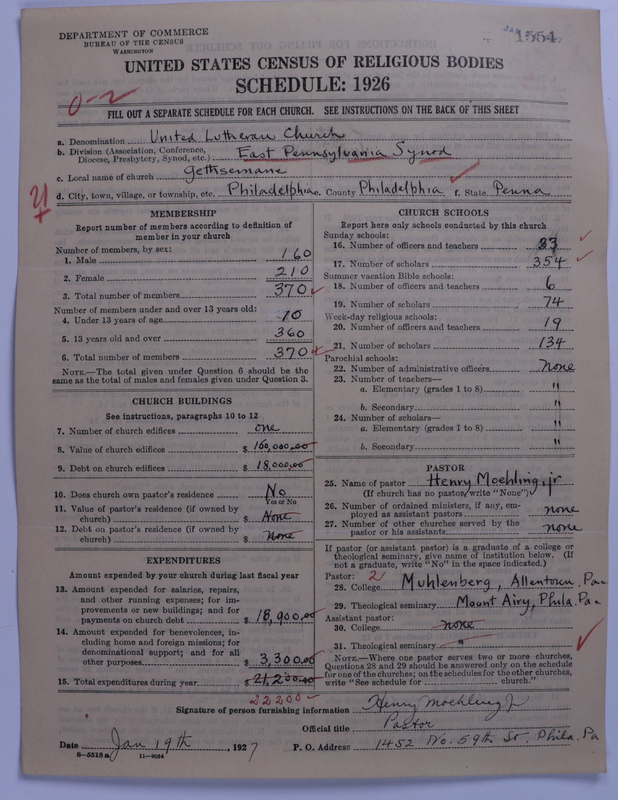 DEPARTMENT OF COMMERCE
BUREAU OF THE CENSUS
WASHINGTON
1554
UNITED STATES CENSUS OF RELIGIOUS BODIES
SCHEDULE: 1926
0-2
FILL OUT A SEPARATE SCHEDULE FOR EACH CHURCH. SEE INSTRUCTIONS ON THE BACK OF THIS SHEET
a. Denomination United Lutheran Church
b. Division (Association, Conference, Diocese, Presbytery, Synod, etc.) East Pennsylvania Synod
c. Local name of church Gethsemane
d. City, town, village, or township, etc. Philadelphia e. County Philadelphia f. State Penna
MEMBERSHIP
Report number of members according to definition of
member in your church
Number of members, by sex:
1. Male 160
2. Female 210
3. Total number of members 370
Number of members under and over 13 years old:
4. Under 13 years of age 10
5. 13 years old and over 360
6. Total number of members 370
NOTE.—The total given under Question 6 should be the
same as the total of males and females given under Question 3.
CHURCH BUILDINGS
See instructions, paragraphs 10 to 12
7. Number of church edifices one
8. Value of church edifices $ 160,000.00
9. Debt on church edifices $ 18,000.00
10. Does church own pastor's residence No
Yes or No
11. Value of pastor's residence (if owned by
church) $ None
12. Debt on pastor's residence (if owned by
church) $ none
EXPENDITURES
Amount expended by your church during last fiscal year
13. Amount expended for salaries, repairs,
and other running expenses; for im-
provements or new buildings; and for
payments on church debt $ 18,900.00
14. Amount expended for benevolences, in-
cluding home and foreign missions; for
denominational support; and for all
other purposes $ 3,300.00
15. Total expenditures during year $ 21,200.00
22200
CHURCH SCHOOLS
Report here only schools conducted by this church
Sunday schools:
16. Number of officers and teachers 33
17. Number of scholars 354
Summer vacation Bible schools:
18. Number of officers and teachers 6
19. Number of scholars 74
Week-day religious schools:
20. Number of officers and teachers 19
21. Number of scholars 134
Parochial schools:
22. Number of administrative officers none
23. Number of teachers—
a. Elementary (grades 1 to 8) "
b. Secondary "
24. Number of scholars—
a. Elementary (grades 1 to 8) "
b. Secondary "
PASTOR
25. Name of pastor Henry Moehling, jr
(If church has no pastor, write "None")
26. Number of ordained ministers, if any, em-
ployed as assistant pastors none
27. Number of other churches served by the
pastor or his assistants none
If pastor (or assistant pastor) is a graduate of a college or
theological seminary, give name of institution below. (If
not a graduate, write "No" in the space indicated.)
Pastor: 2
28. College Muhlenberg, Allentown, Pa
29. Theological seminary Mount Airy, Phila. Pa
Assistant pastor:
30. College none
31. Theological seminary "
NOTE.—Where one pastor serves two or more churches,
Questions 28 and 29 should be answered only on the schedule
for one of the churches; on the schedules for the other churches,
write "See schedule for ____ church."
Signature of person furnishing information Henry Moehling Jr
Official title Pastor
Date Jan 19th, 1927 P. O. Address 1452 No. 59th St. Phila. Pa
8—5518a 11—9034